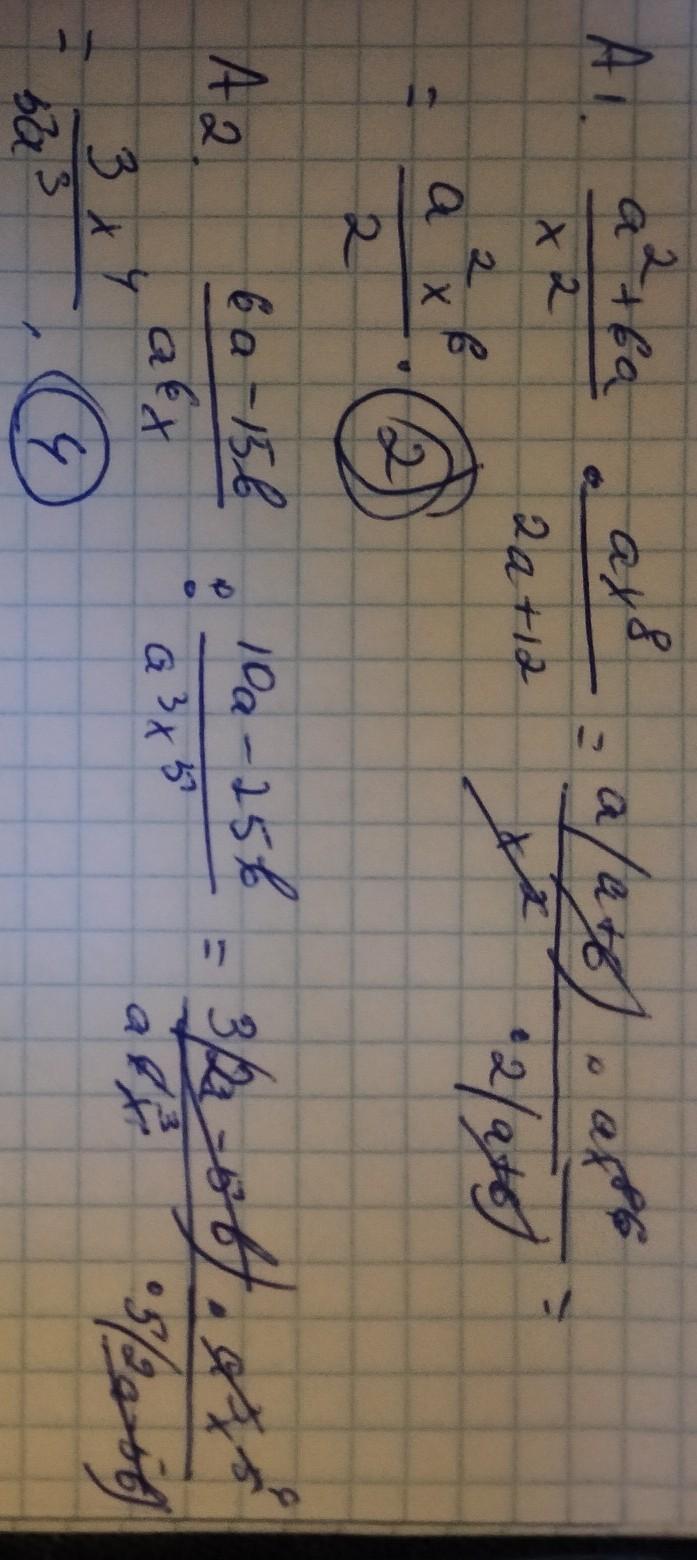 A1. (a² + 6a)/x² · ax⁸/(2a + 12) = a(a + 6) · ax⁶/(x² · 2(a + 6)) =
= a²x⁶/2 . 2
A2. (6a - 15b)/(a⁶x) : (10a - 25b)/(a³x⁵) = 3(2a - 5b) · a³x⁵/(a⁶x · 5(2a - 5b))
= 3x⁴/5a³ , 4